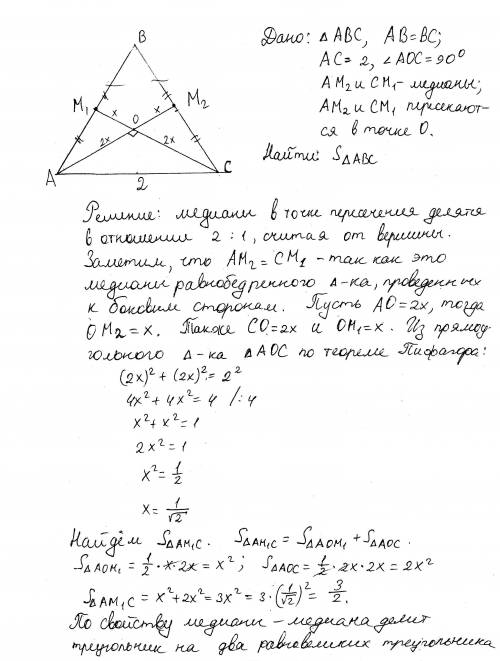 B
Дано: △ ABC, AB=BC;
AC = 2, ∠AOC=90⁰
AM₂ и CM₁ - медианы;
AM₂ и CM₁ пересекают-
ся в точке O.
Найти: S△ABC
M₁ x x M₂
O
2x 2x
A 2 C
Решение: медианы в точке пересечения делятся
в отношении 2:1, считая от вершины.
Заметим, что AM₂ = CM₁ - так как это
медианы равнобедренного △-ка, проведенных
к боковым сторонам. Пусть AO=2x, тогда
OM₂ = x. Также CO=2x и OM₁=x. Из прямо-
угольного △-ка △AOC по теореме Пифагора:
(2x)² + (2x)² = 2²
4x² + 4x² = 4 /:4
x² + x² = 1
2x² = 1
x² = 1/2
x = 1/√2
Найдём S△AM₁C. S△AM₁C = S△AOM₁ + S△AOC.
S△AOM₁ = 1/2 · x · 2x = x²; S△AOC = 1/2 · 2x · 2x = 2x²
S△AM₁C = x² + 2x² = 3x² = 3 · (1/√2)² = 3/2.
По свойству медианы - медиана делит
треугольник на два равновеликих треугольника